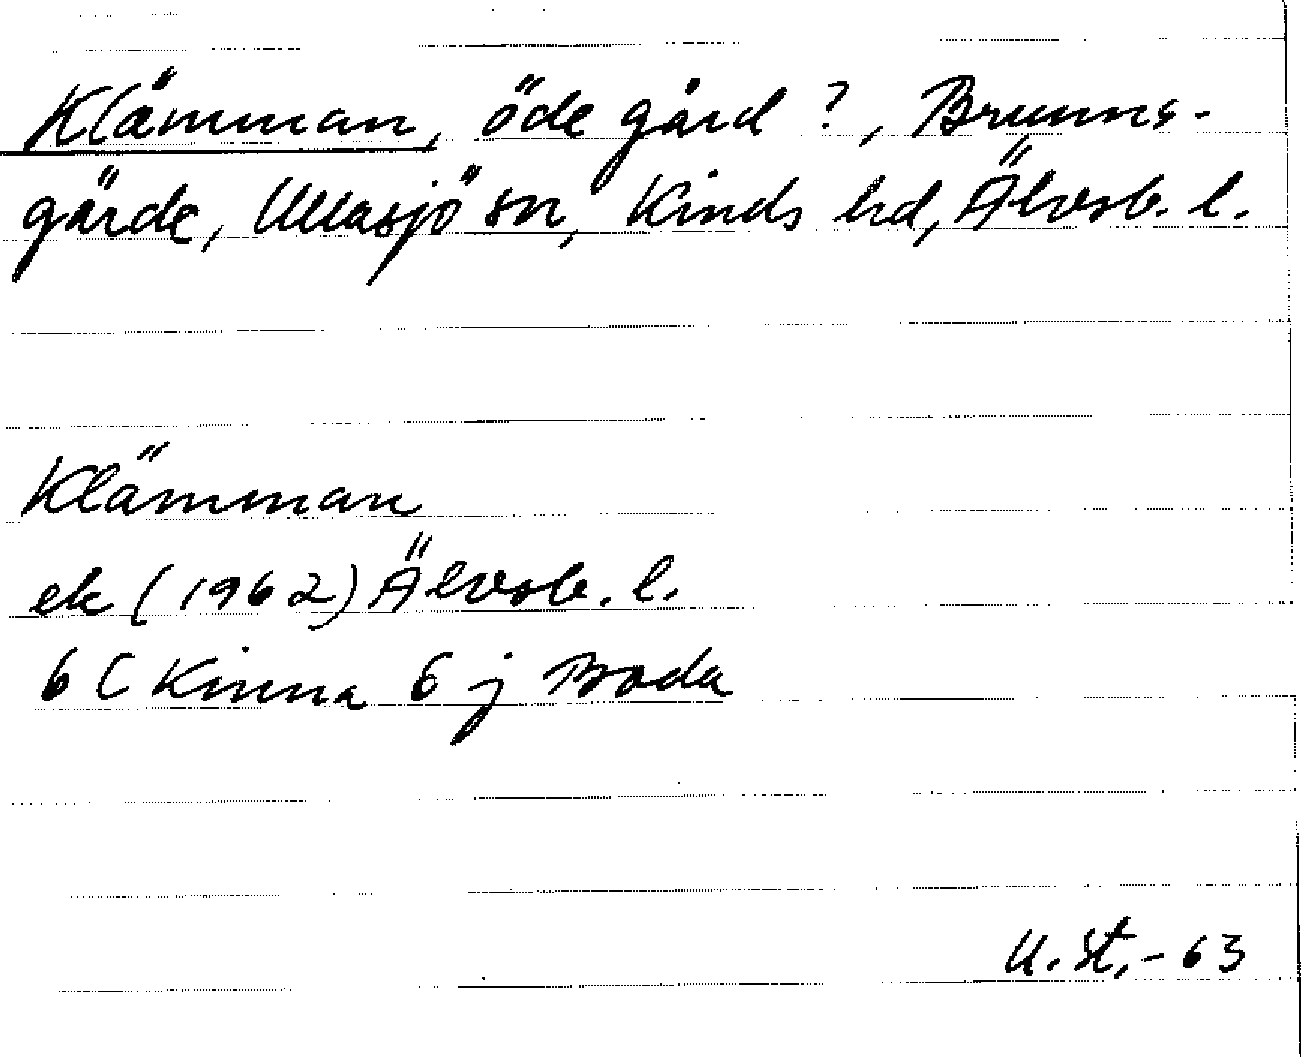 Klämman, öde gård ?, Brunns-
gärde, Ullasjö sn, Kinds hd, Älvsb. l.
Klämman
ek (1962) Älvsb. l.
6 C Kinna 6 j Boda
U. St. - 63